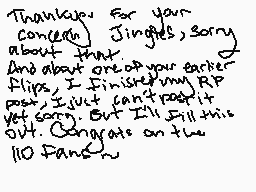 Thankyu. For your
concern Jingles, sorry
about that.
And about one of your earlier
flips, I finished my RP
post, I just can't post it
yet, sorry. But I'll fill this
out. Congrats on the
110 fans ~